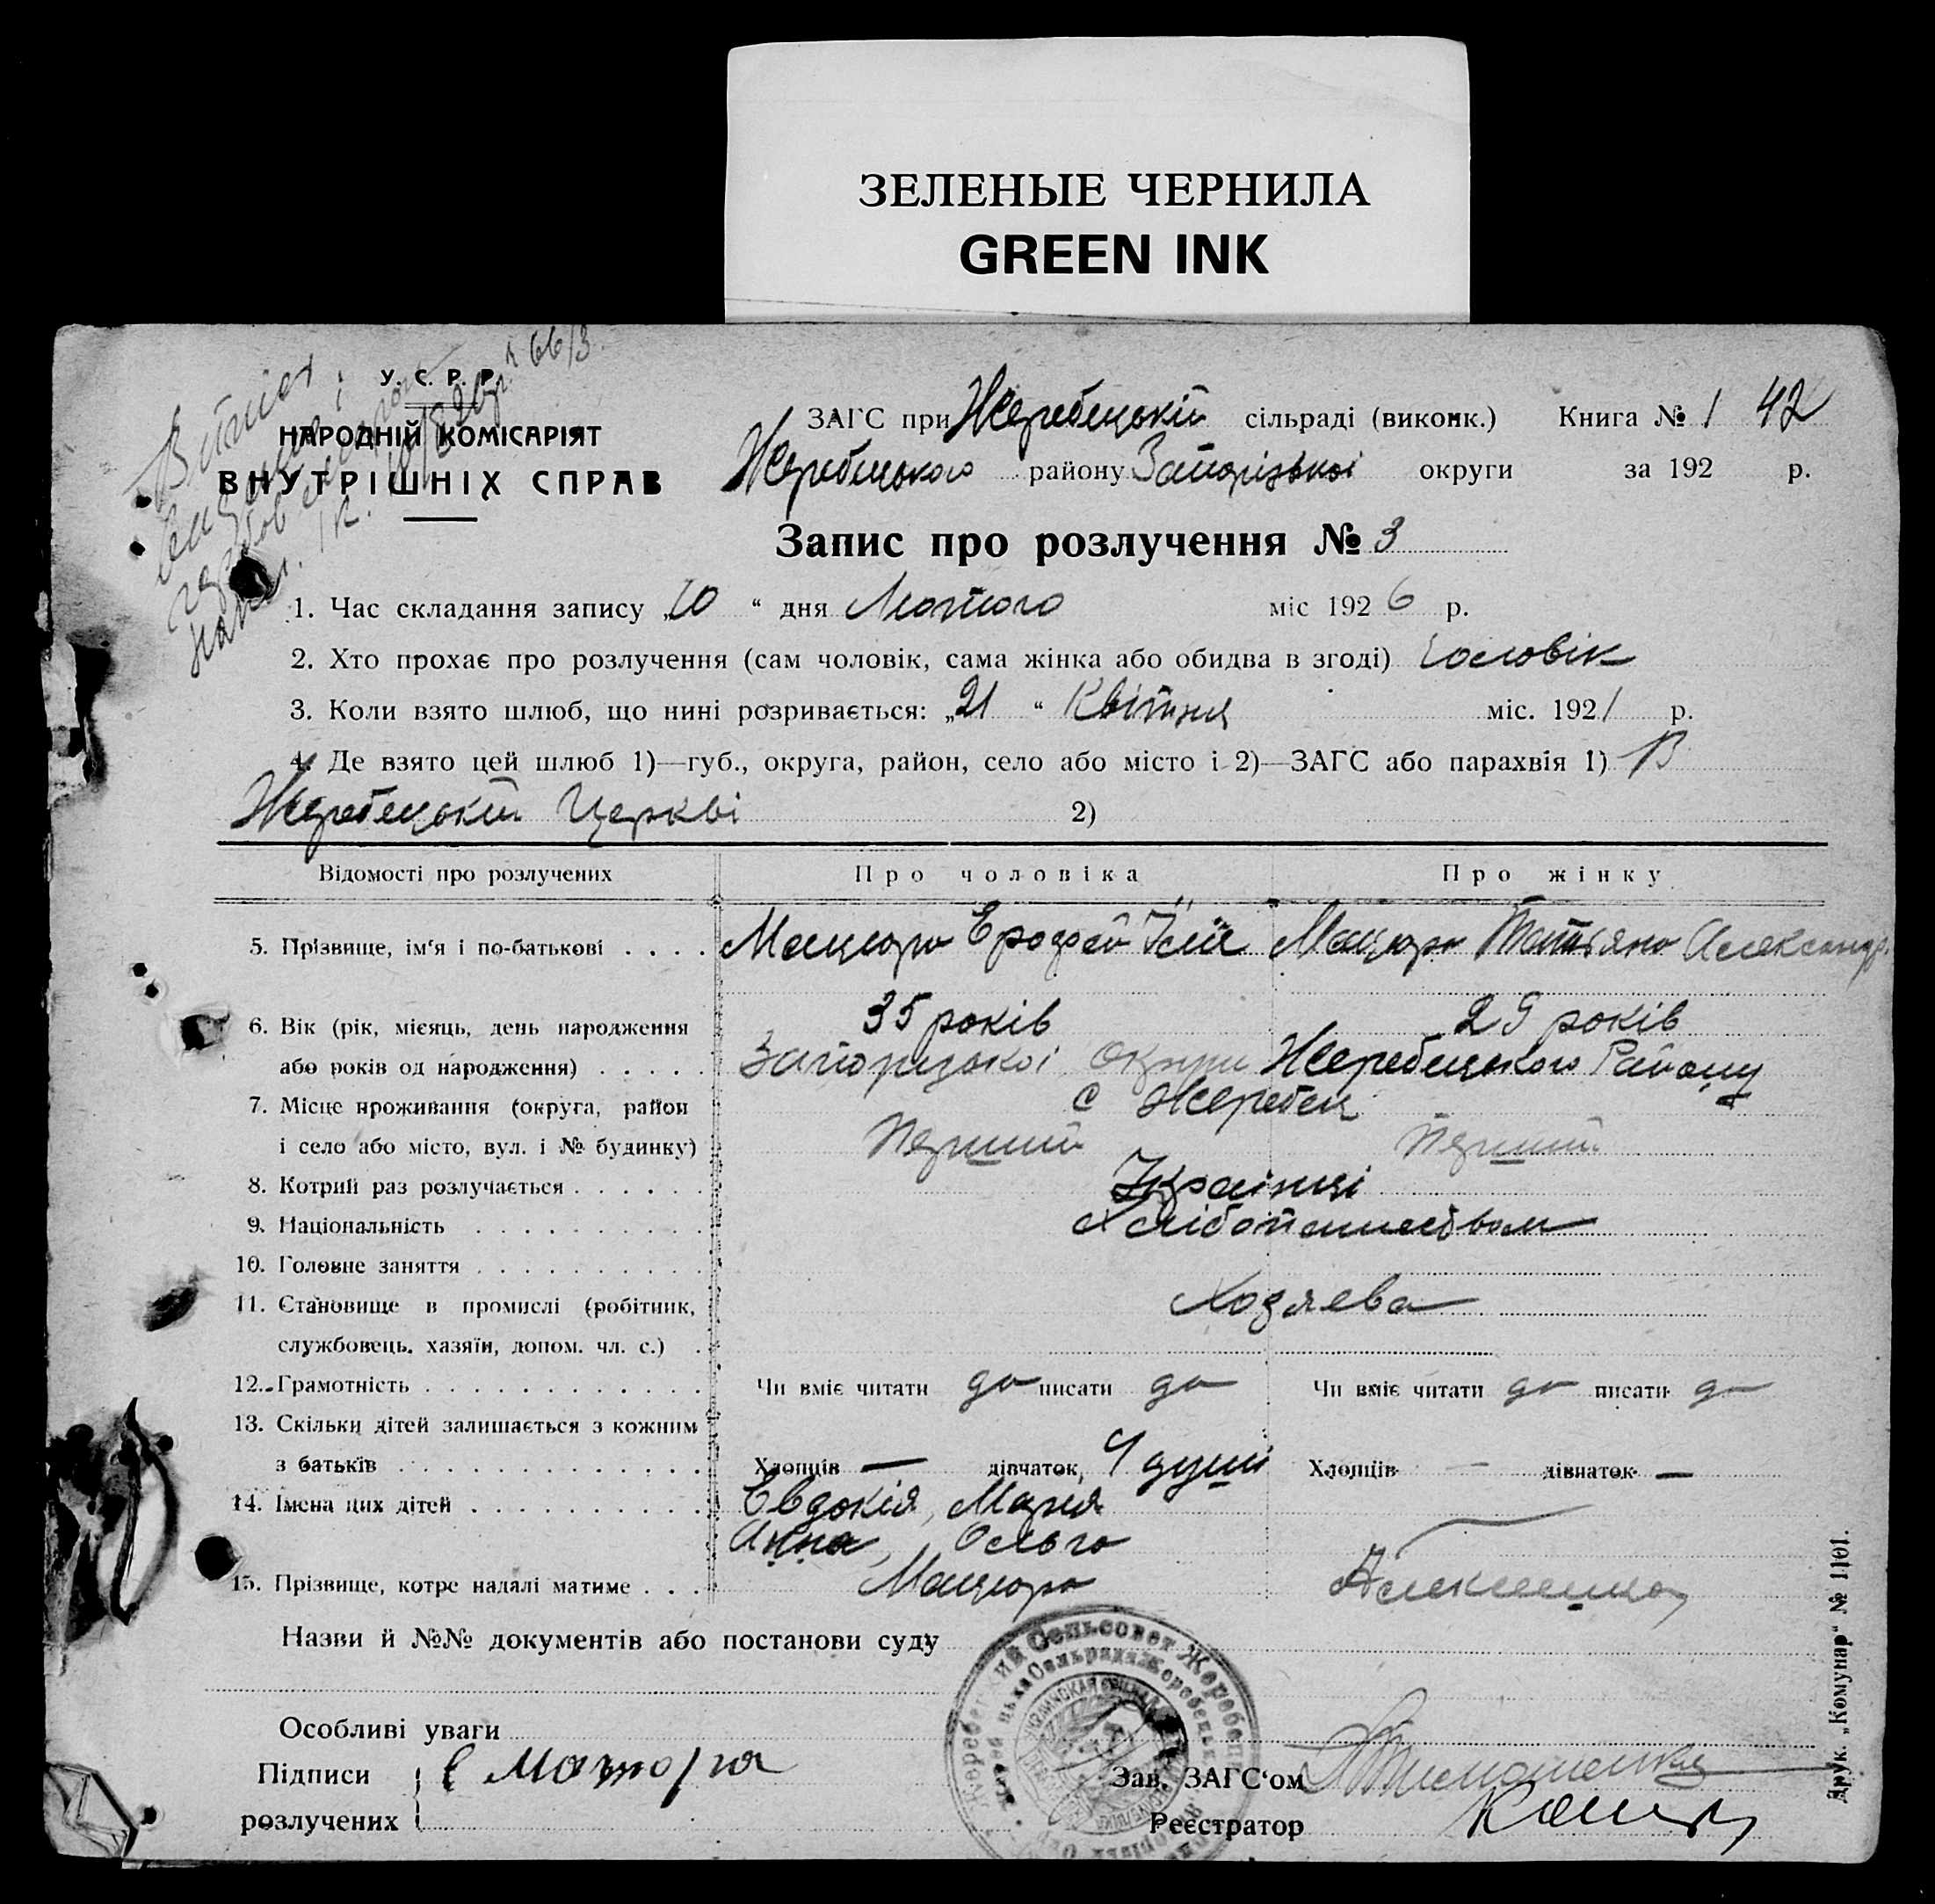 ЗЕЛЕНЫЕ ЧЕРНИЛА
GREEN INK
У. С. Р. Р.
НАРОДНІЙ КОМІСАРІЯТ
ВНУТРІШНІХ СПРАВ
ЗАГС при Жеребецькій сільраді (виконк.) Книга № 1 42
Жеребецького району Запорізької округи за 192 р.
Запис про розлучення № 3
1. Час складання запису „10 “ дня Лютого міс 1926 р.
2. Хто прохає про розлучення (сам чоловік, сама жінка або обидва в згоді) Чоловік
3. Коли взято шлюб, що нині розривається: „21 “ Квітня міс. 1921 р.
4. Де взято цей шлюб 1)—губ., округа, район, село або місто і 2)—ЗАГС або парахвія 1) В
Жеребецькій Церкві 2)
Відомості про розлучених Про чоловіка Про жінку
5. Прізвище, ім‘я і по-батькові . . . . Мацюра Ерофей Мацюра Татьяна Александр.
6. Вік (рік, місяць, день народження 35 років 29 років
або років од народження) . . . . . Запорізької Округи Жеребецького Району
7. Місце проживання (округа, район с Жеребец
і село або місто, вул. і № будинку) Перший Перший
8. Котрий раз розлучається . . . . . . Українці
9. Національність . . . . . . . . . Хлібопашеством
10. Головне заняття . . . . . . . . .
11. Становище в промислі (робітник, Хозяева
службовець, хазяїн, допом. чл. с.) .
12. Грамотність . . . . . . . . . . . . Чи вміє читати да писати да Чи вміє читати да писати да
13. Скільки дітей залишається з кожним
з батьків . . . . . . . . . . . . . Хлопців — дівчаток, 4 душі Хлопців — дівчаток —
14. Імена цих дітей . . . . . . . . . Евдокія, Мария
Анна, Ольга
15. Прізвище, котре надалі матиме . . . Мацюра
Назви й №№ документів або постанови суду
Особливі уваги
Підписи Е Мацюра Зав. ЗАГС‘ом
розлучених Реєстратор
Друк. „Комунар“ № 1101.